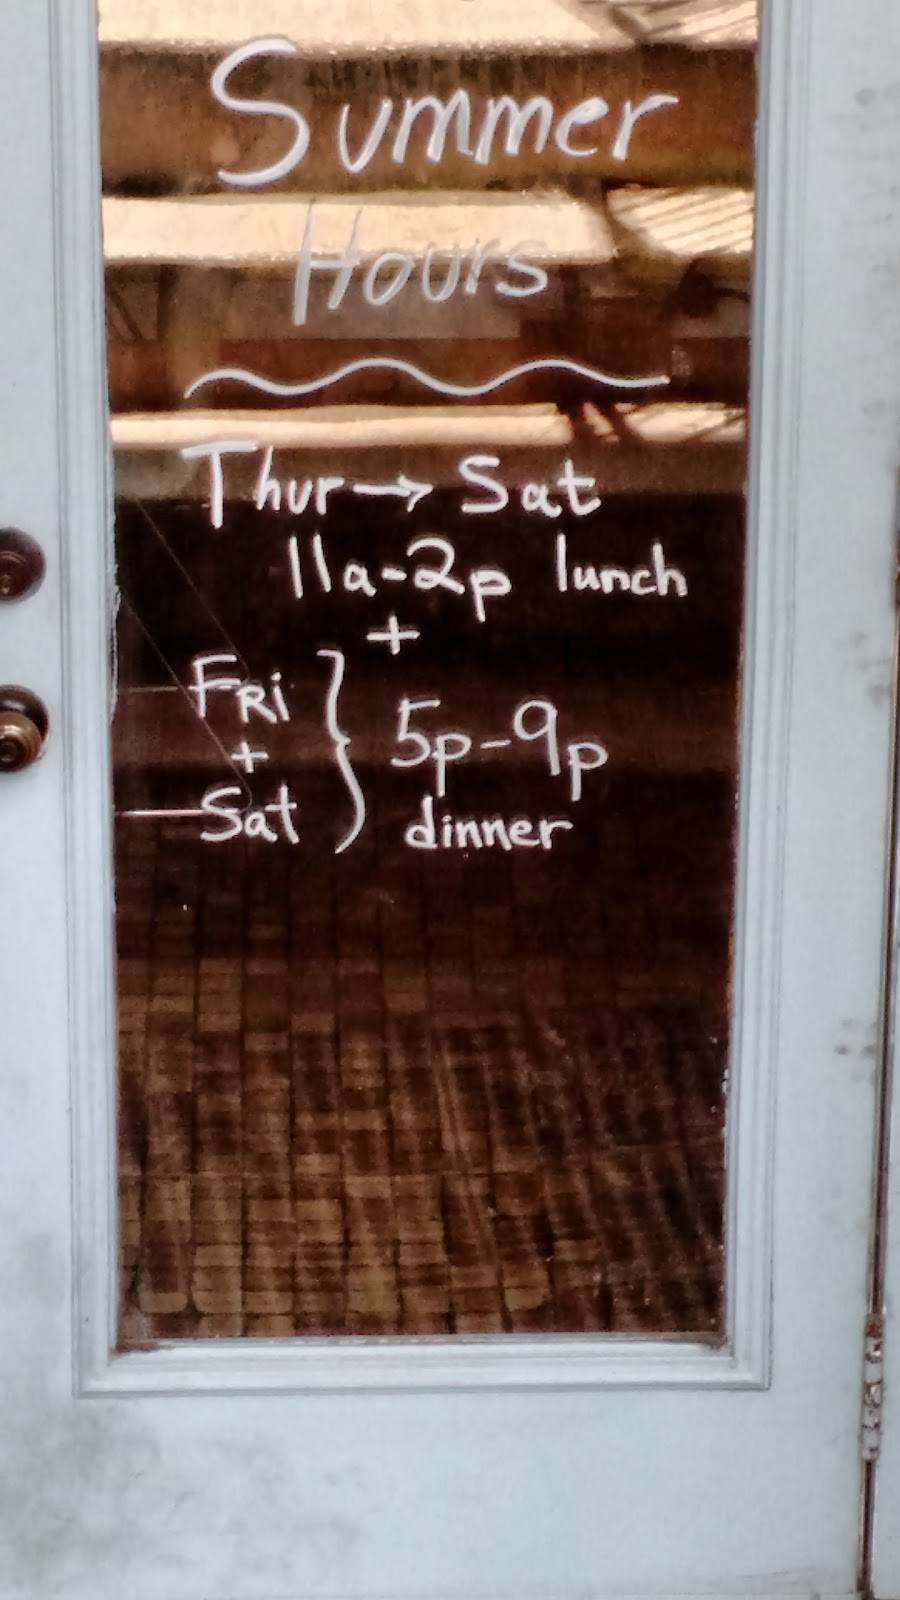 Summer
Hours
Thur → Sat
11a-2p lunch
+
FRi
+
Sat } 5p-9p
dinner